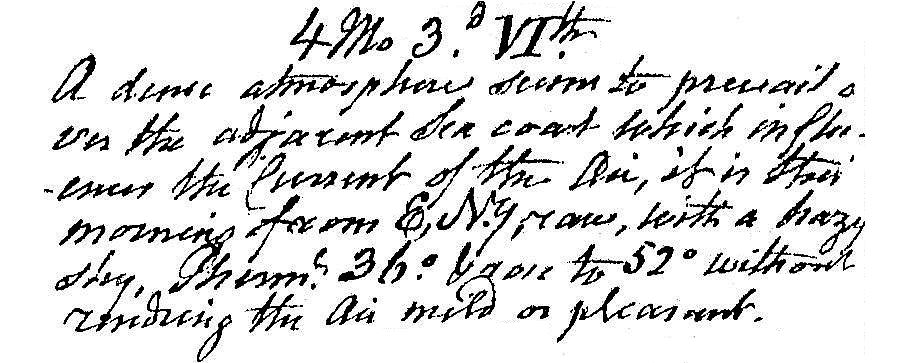 4 Mo 3.d VIth.
A dense atmosphere seems to prevail o
ver the adjacent Sea coast which influ-
-ences the Current of the Air, it is this
morning from E, N.y, raw, with a hazy
sky, Thermr. 36° & rose to 52° without
rendering the Air mild or pleasant.